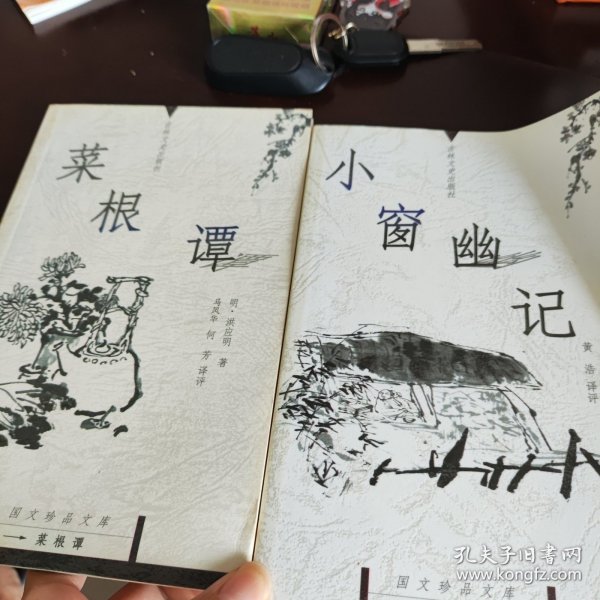 菜根谭
明·洪应明 著
马凤华 何芳 译评
国文珍品文库
菜根谭
吉林文史出版社
小窗幽记
黄浩 译评
国文珍品文库
孔夫子旧书网
www.kongfz.com